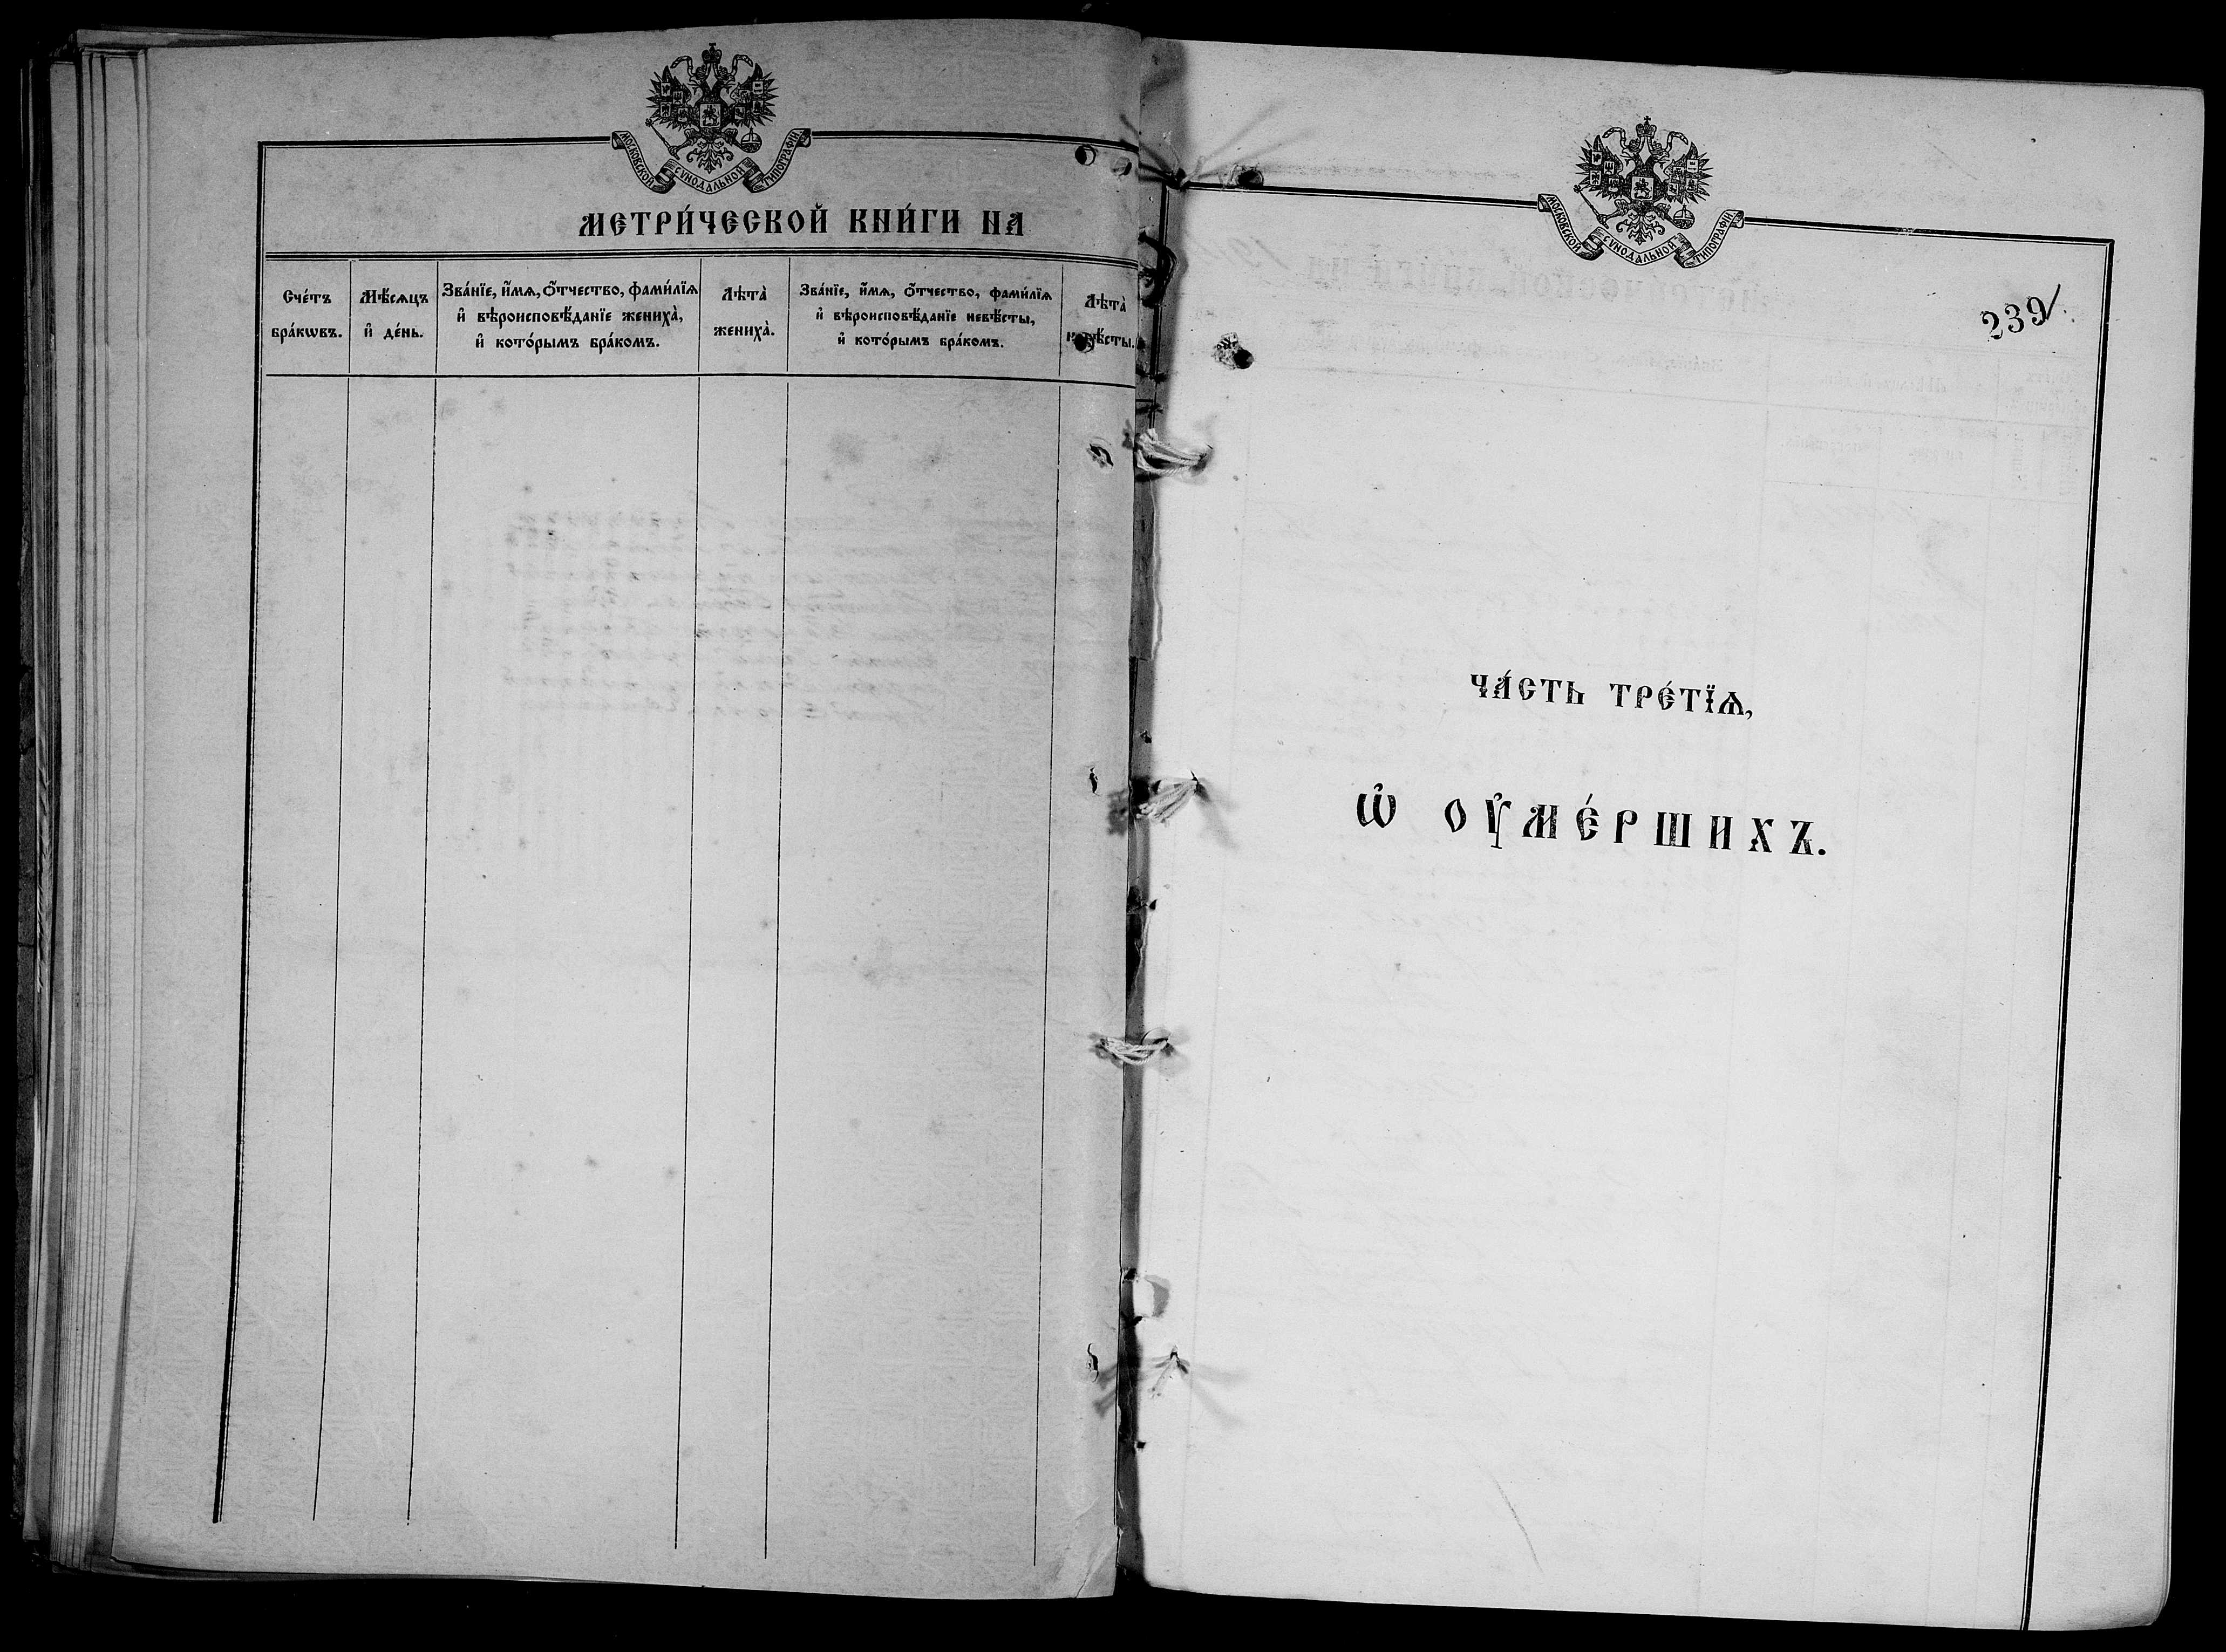 МОСКОВСКОЙ СѴНОДАЛЬНОЙ ТИПОГРАФІИ
МЕТРИ́ЧЕСКОЙ КНИ́ГИ НА
Сче́тъ
бра́кωвъ.
Мѣ́сѧцъ
и҆ де́нь.
Зва́нїе, и҆́мѧ, ѻ҆́тчество, фами́лїѧ
и҆ вѣроисповѣ́данїе жениха̀,
и҆ кото́рымъ бра́комъ.
Лѣта̀
жениха̀.
Зва́нїе, и҆́мѧ, ѻ҆́тчество, фами́лїѧ
и҆ вѣроисповѣ́данїе невѣ́сты,
и҆ кото́рымъ бра́комъ.
Лѣта̀
невѣ́сты.
МОСКОВСКОЙ СѴНОДАЛЬНОЙ ТИПОГРАФІИ
239
ЧА́СТЬ ТРЕ́ТЇѦ,
Ѡ҆ ОУ҆МЕ́РШИХЪ.